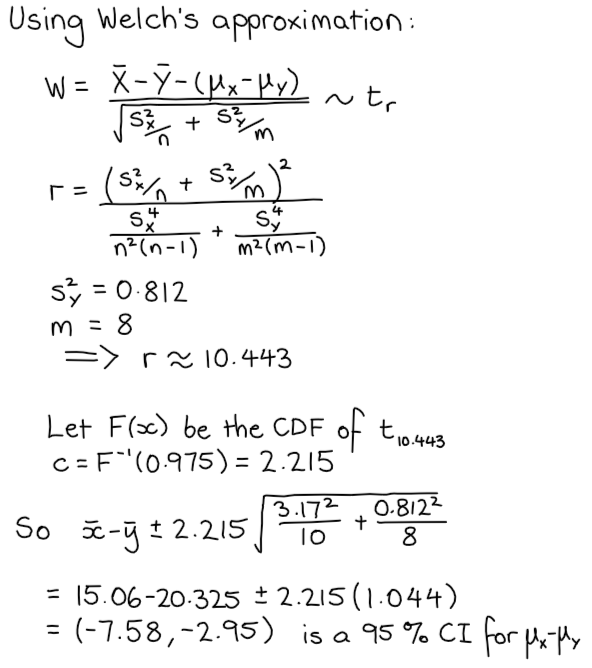 Using Welch's approximation:
W = X̄ - Ȳ - (μₓ - μᵧ) / √(Sₓ²/n + Sᵧ²/m) ~ tᵣ
r = (Sₓ²/n + Sᵧ²/m)² / (Sₓ⁴/(n²(n-1)) + Sᵧ⁴/(m²(m-1)))
Sᵧ² = 0.812
m = 8
⟹ r ≈ 10.443
Let F(x) be the CDF of t₁₀.₄₄₃
c = F⁻¹(0.975) = 2.215
So x̄ - ȳ ± 2.215 √(3.17²/10 + 0.812²/8)
= 15.06 - 20.325 ± 2.215 (1.044)
= (-7.58, -2.95) is a 95% CI for μₓ-μᵧ